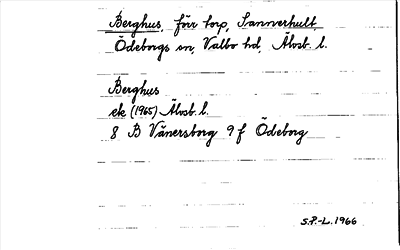 Berghus, förr torp, Sannerhult,
Ödeborgs sn, Valbo hd, Älvsb. l.
Berghus
ek (1965) Älvsb. l.
8 B Vänersborg 9 f Ödeborg
S.P.-L. 1966